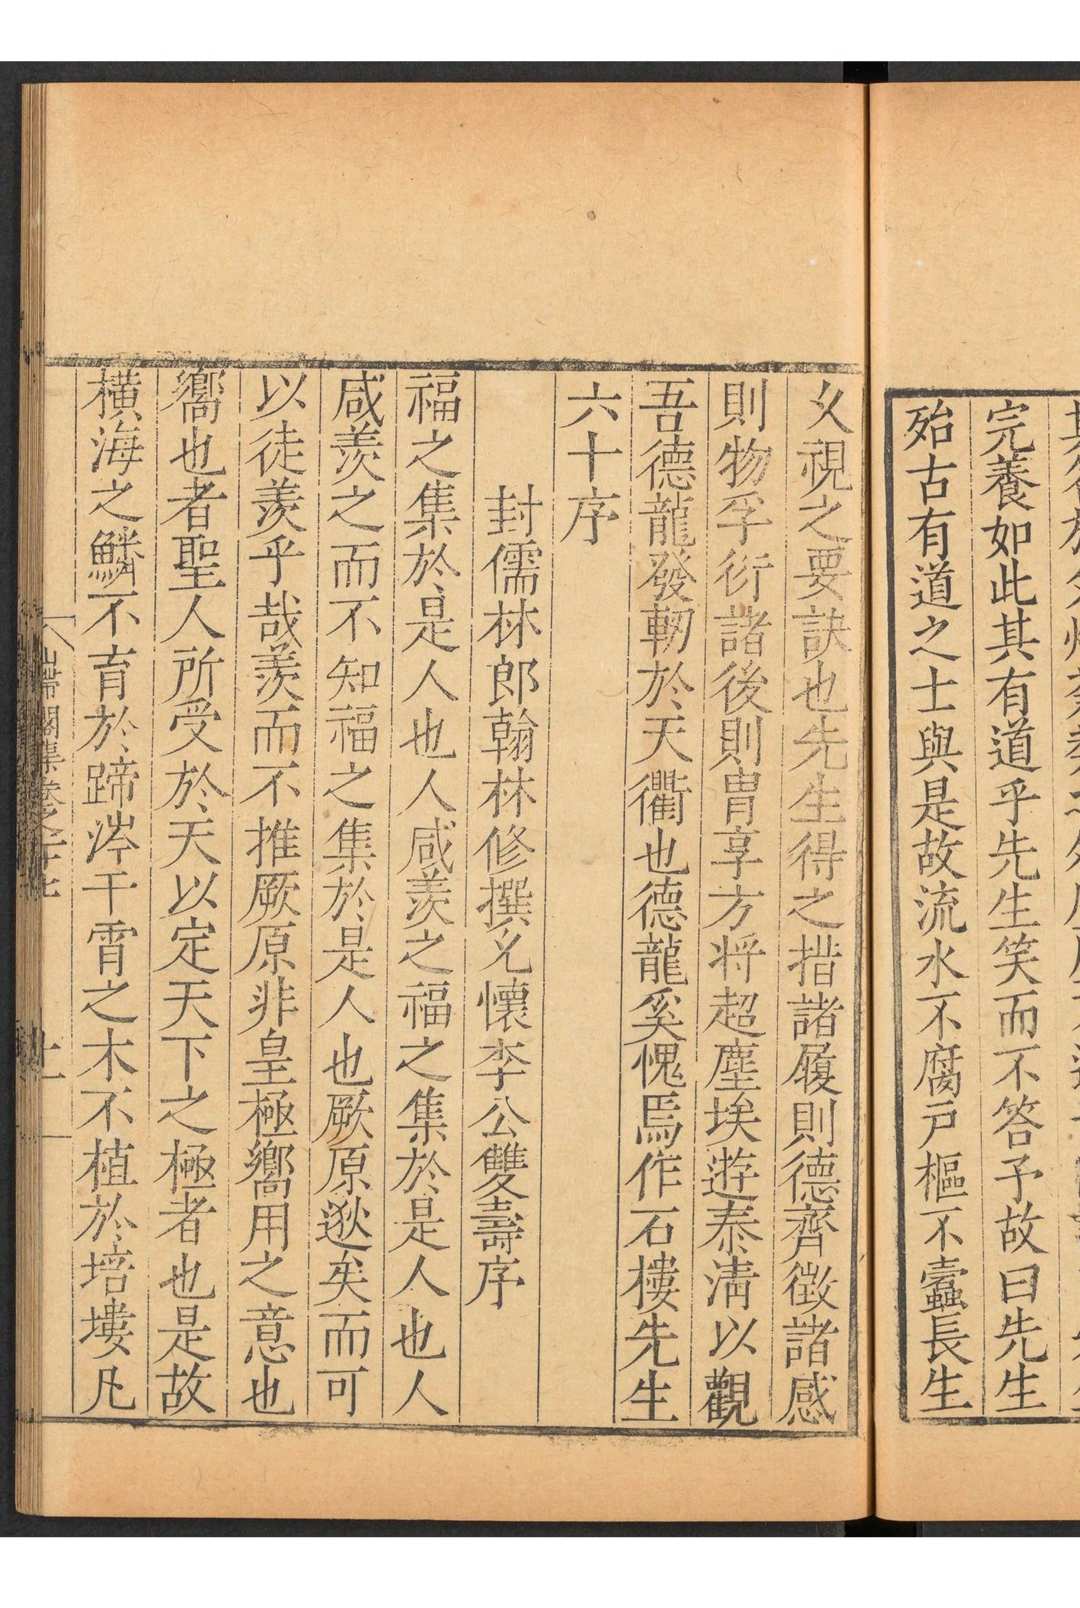 完養如此其有道乎先生笑而不答予故曰先生
殆古有道之士與是故流水不腐戸樞不蠹長生
乆視之要訣也先生得之措諸履則德齊徵諸感
則物孚衍諸後則胄享方将超塵埃遊泰清以觀
吾德龍發軔於天衢也德龍奚愧焉作石樓先生
六十序
封儒林郎翰林修撰允懷李公雙壽序
福之集於是人也人咸羨之福之集於是人也人
咸羨之而不知福之集於是人也厥原逖矣而可
以徒羨乎哉羨而不推厥原非皇極嚮用之意也
嚮也者聖人所受於天以定天下之極者也是故
橫海之鱗不育於蹄涔干霄之木不植於培塿凡